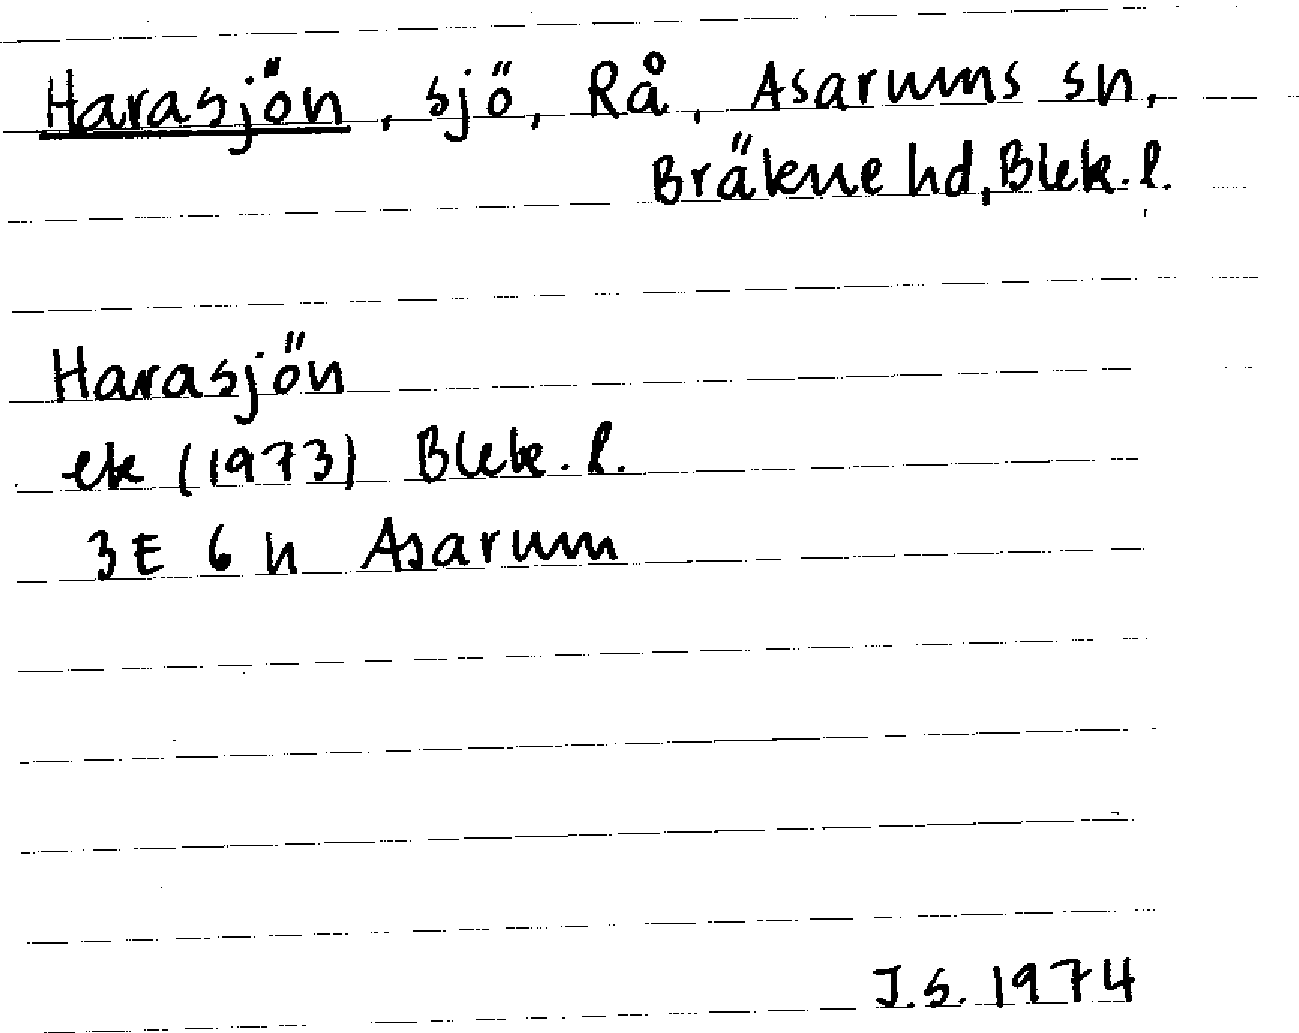 Harasjön, sjö, Rå, Asarums sn,
Bräkne hd, Blek. l.
Harasjön
ek (1973) Blek. l.
3E 6 h Asarum
J.S. 1974